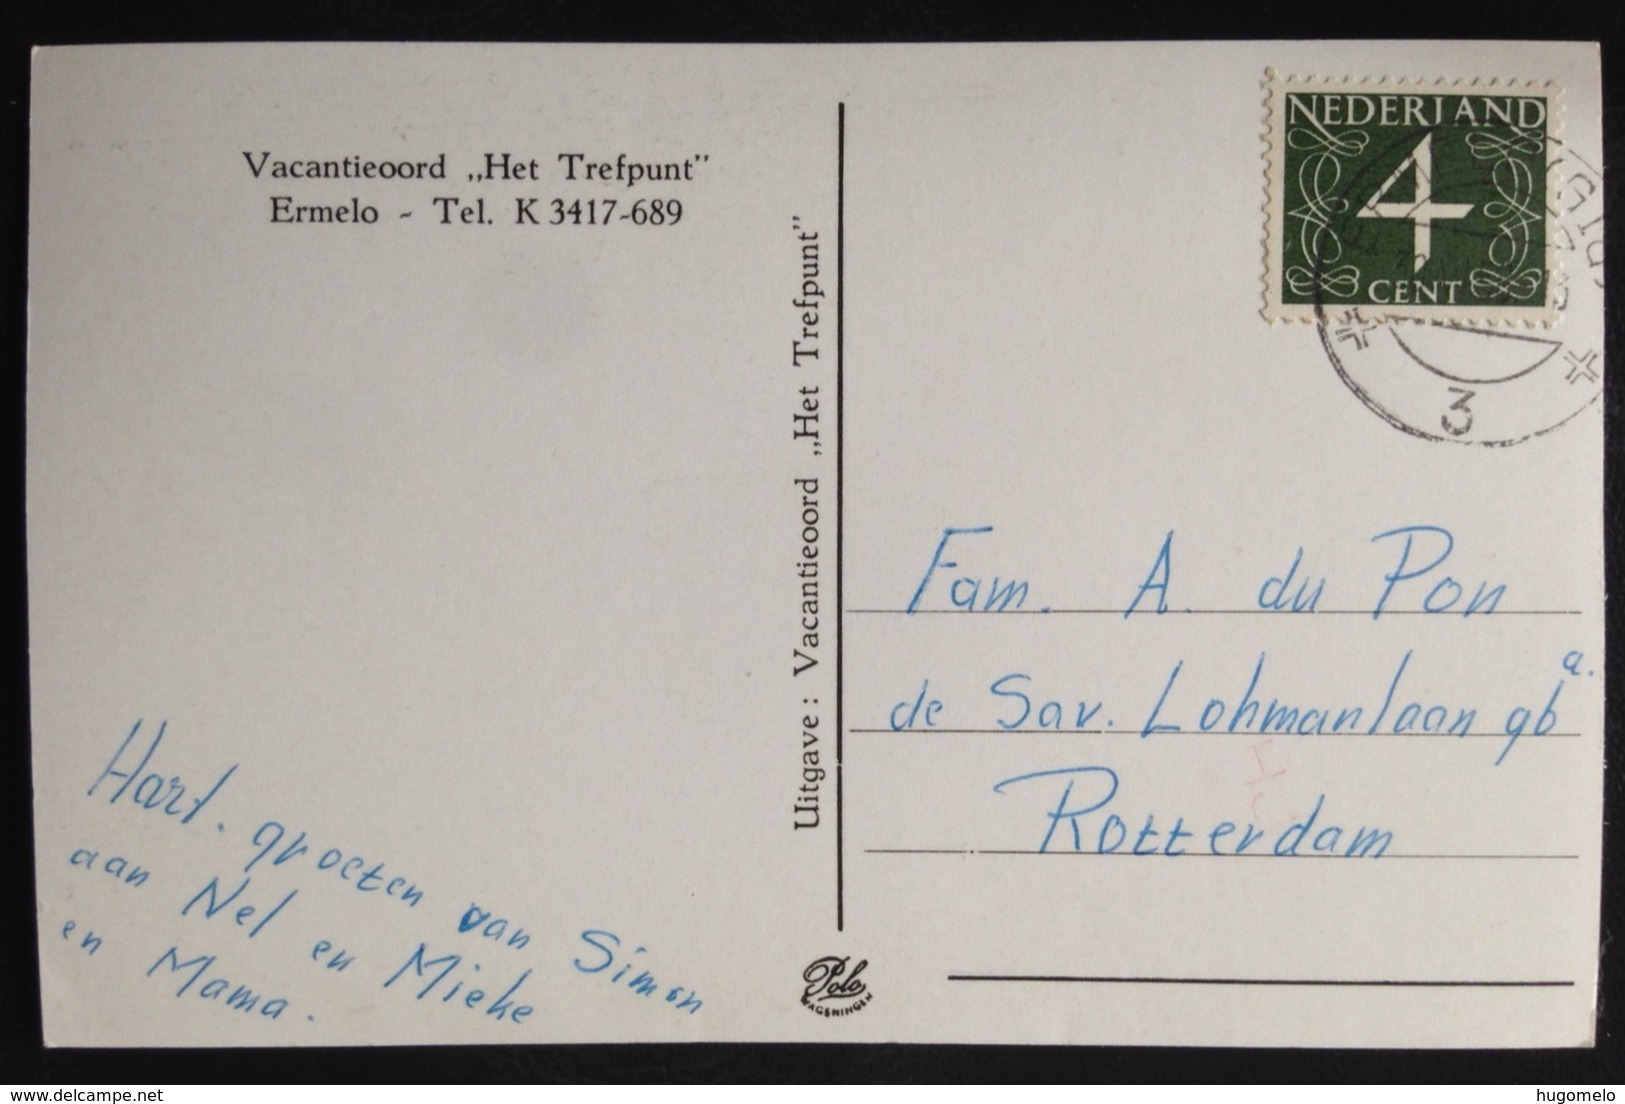 Vacantieoord „Het Trefpunt”
Ermelo - Tel. K 3417-689
Hart. groeten van Simon
aan Nel en Mieke
en Mama.
Uitgave: Vacantieoord „Het Trefpunt”
Polo
WAGENINGEN
NEDERLAND
4
CENT
3
Fam. A. du Pon
de Sav. Lohmanlaan 9b a.
Rotterdam
delcampe.net
hugomelo